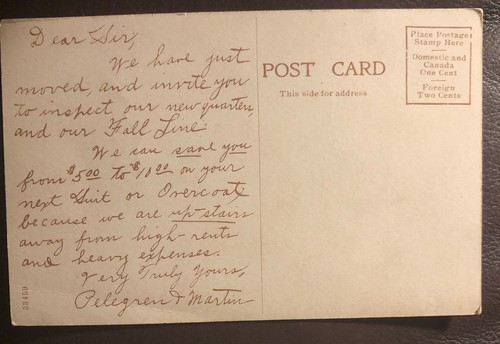 Dear Sir,
We have just
moved, and invite you
to inspect our new quarters,
and our Fall Line.
We can save you
from $5.00 to $10.00 on your
next Suit or Overcoat
because we are up-stairs
away from high-rents
and heavy expenses.
Very Truly Yours,
Pelegren & Martin
33459
POST CARD
This side for address
Place Postage
Stamp Here
Domestic and
Canada
One Cent
Foreign
Two Cents